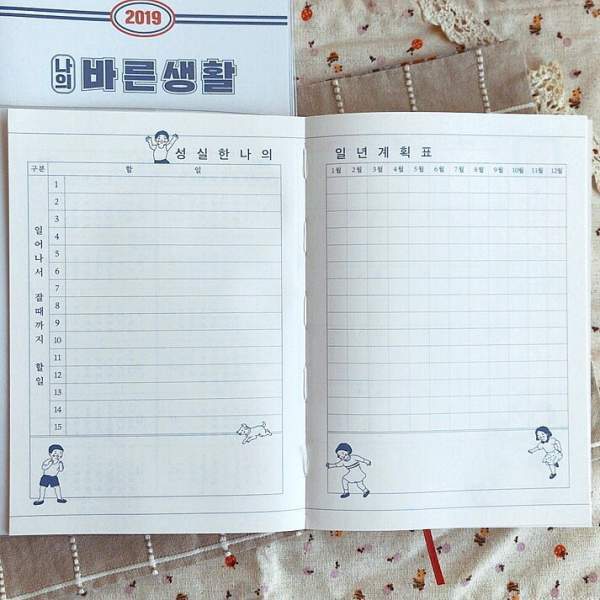 2019
나의 바른생활
성실한나의 일년계획표
구분 할일 1월 2월 3월 4월 5월 6월 7월 8월 9월 10월 11월 12월
1
2
3
4
5
6
7
8
9
10
11
12
13
14
15
일어나서 잘때까지 할일